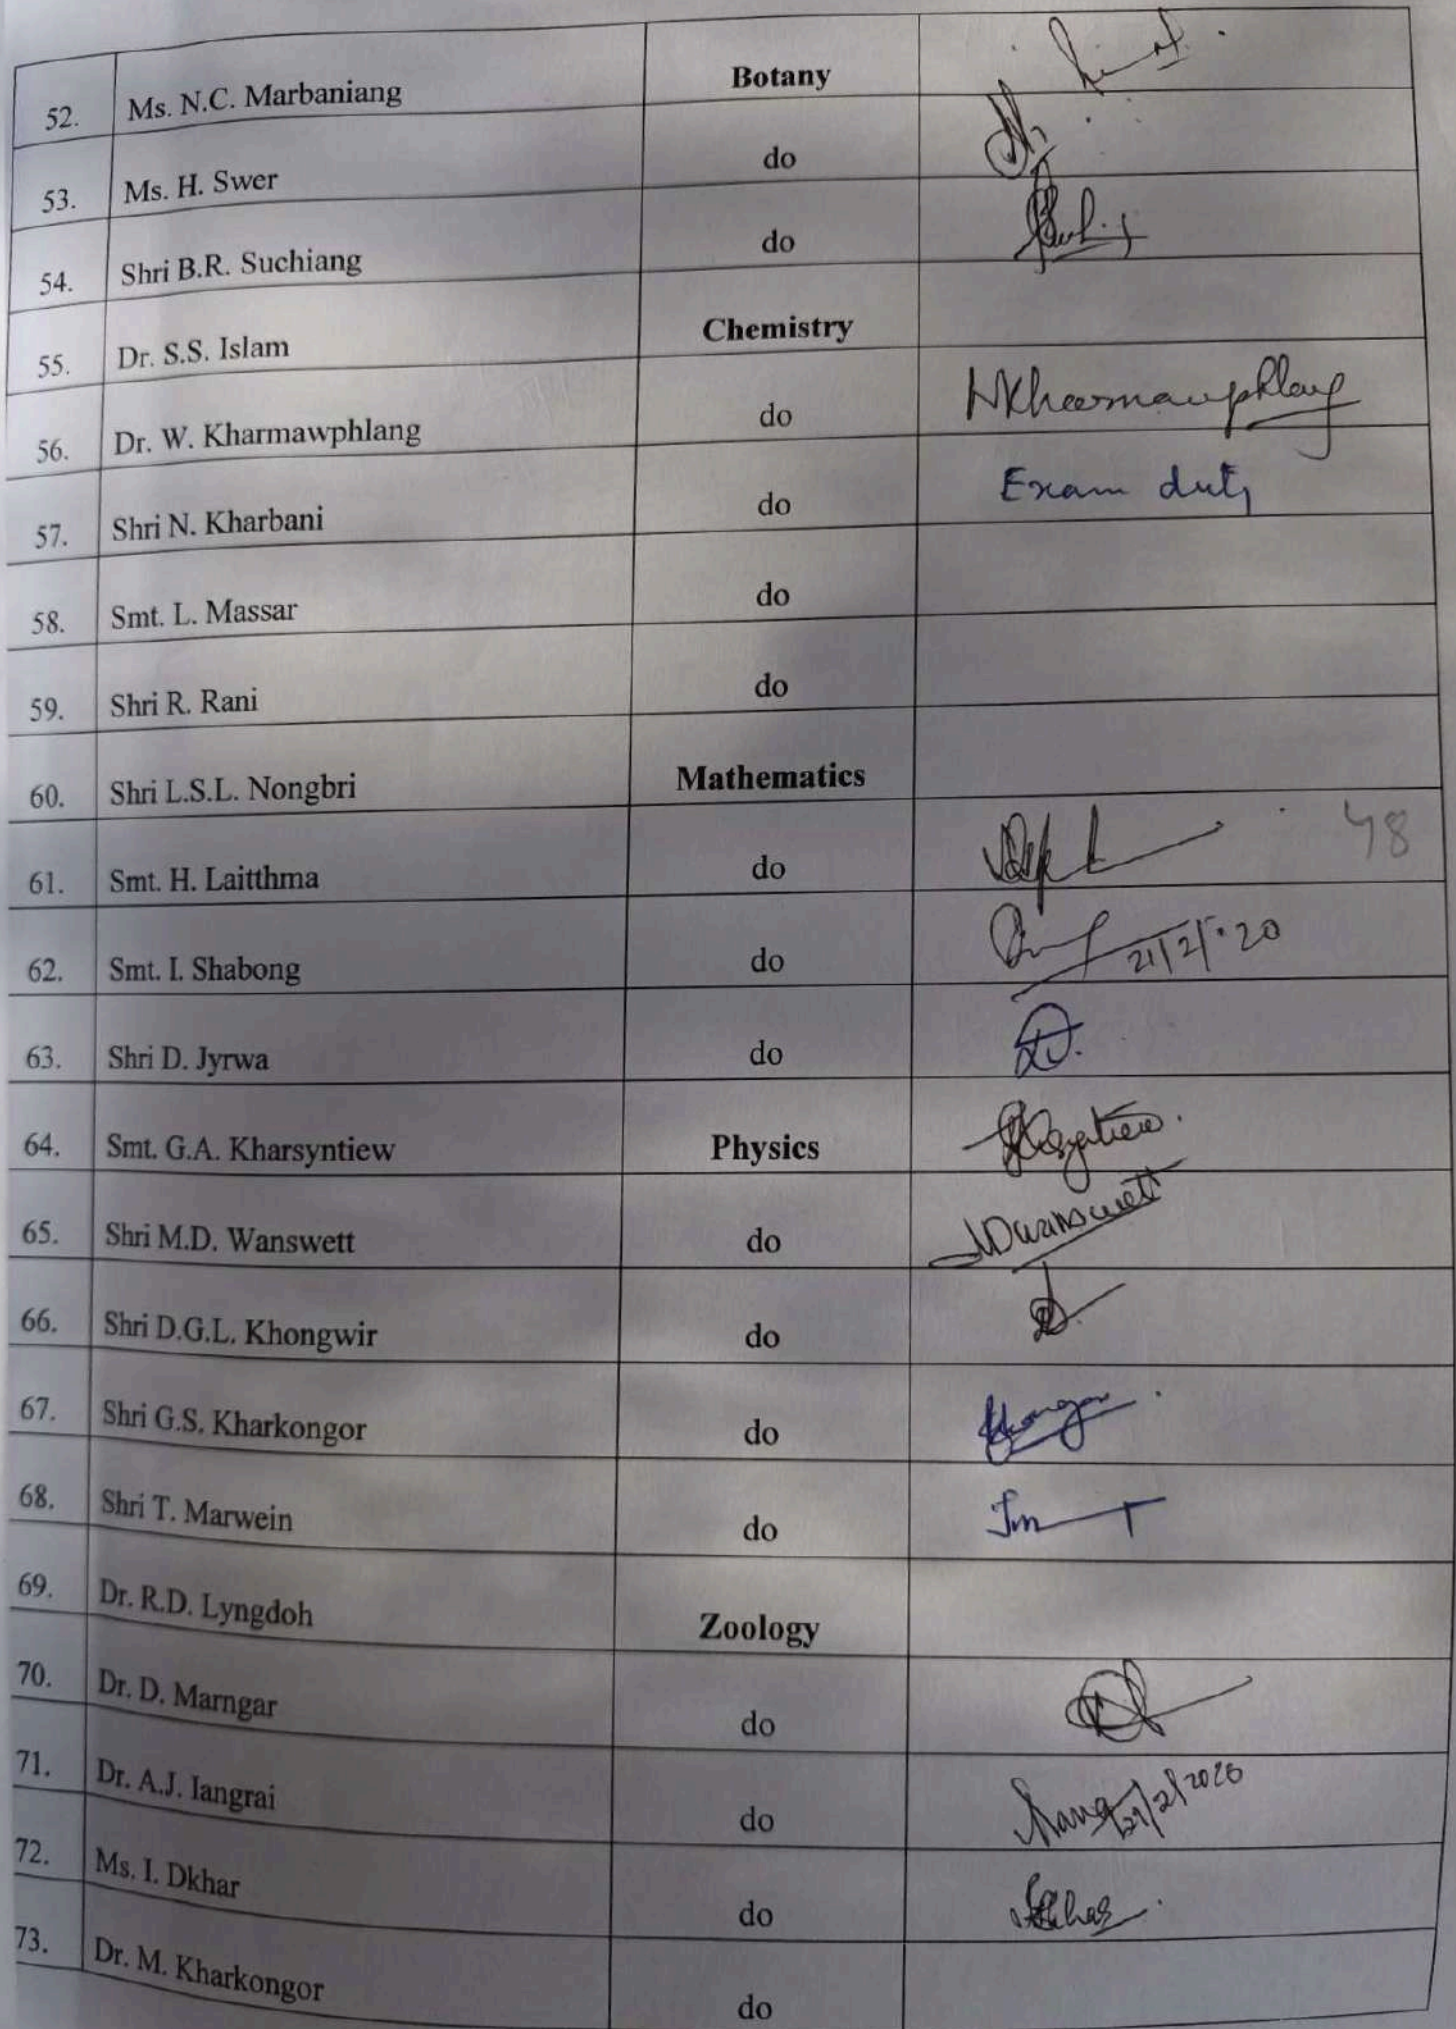 52. Ms. N.C. Marbaniang Botany
53. Ms. H. Swer do
54. Shri B.R. Suchiang do
55. Dr. S.S. Islam Chemistry
56. Dr. W. Kharmawphlang do WKharmawphlang
57. Shri N. Kharbani do Exam duty
58. Smt. L. Massar do
59. Shri R. Rani do
60. Shri L.S.L. Nongbri Mathematics
61. Smt. H. Laitthma do 48
62. Smt. I. Shabong do 21/2/20
63. Shri D. Jyrwa do
64. Smt. G.A. Kharsyntiew Physics
65. Shri M.D. Wanswett do MDWanswett
66. Shri D.G.L. Khongwir do
67. Shri G.S. Kharkongor do
68. Shri T. Marwein do
69. Dr. R.D. Lyngdoh Zoology
70. Dr. D. Marngar do
71. Dr. A.J. Iangrai do
72. Ms. I. Dkhar do
73. Dr. M. Kharkongor do